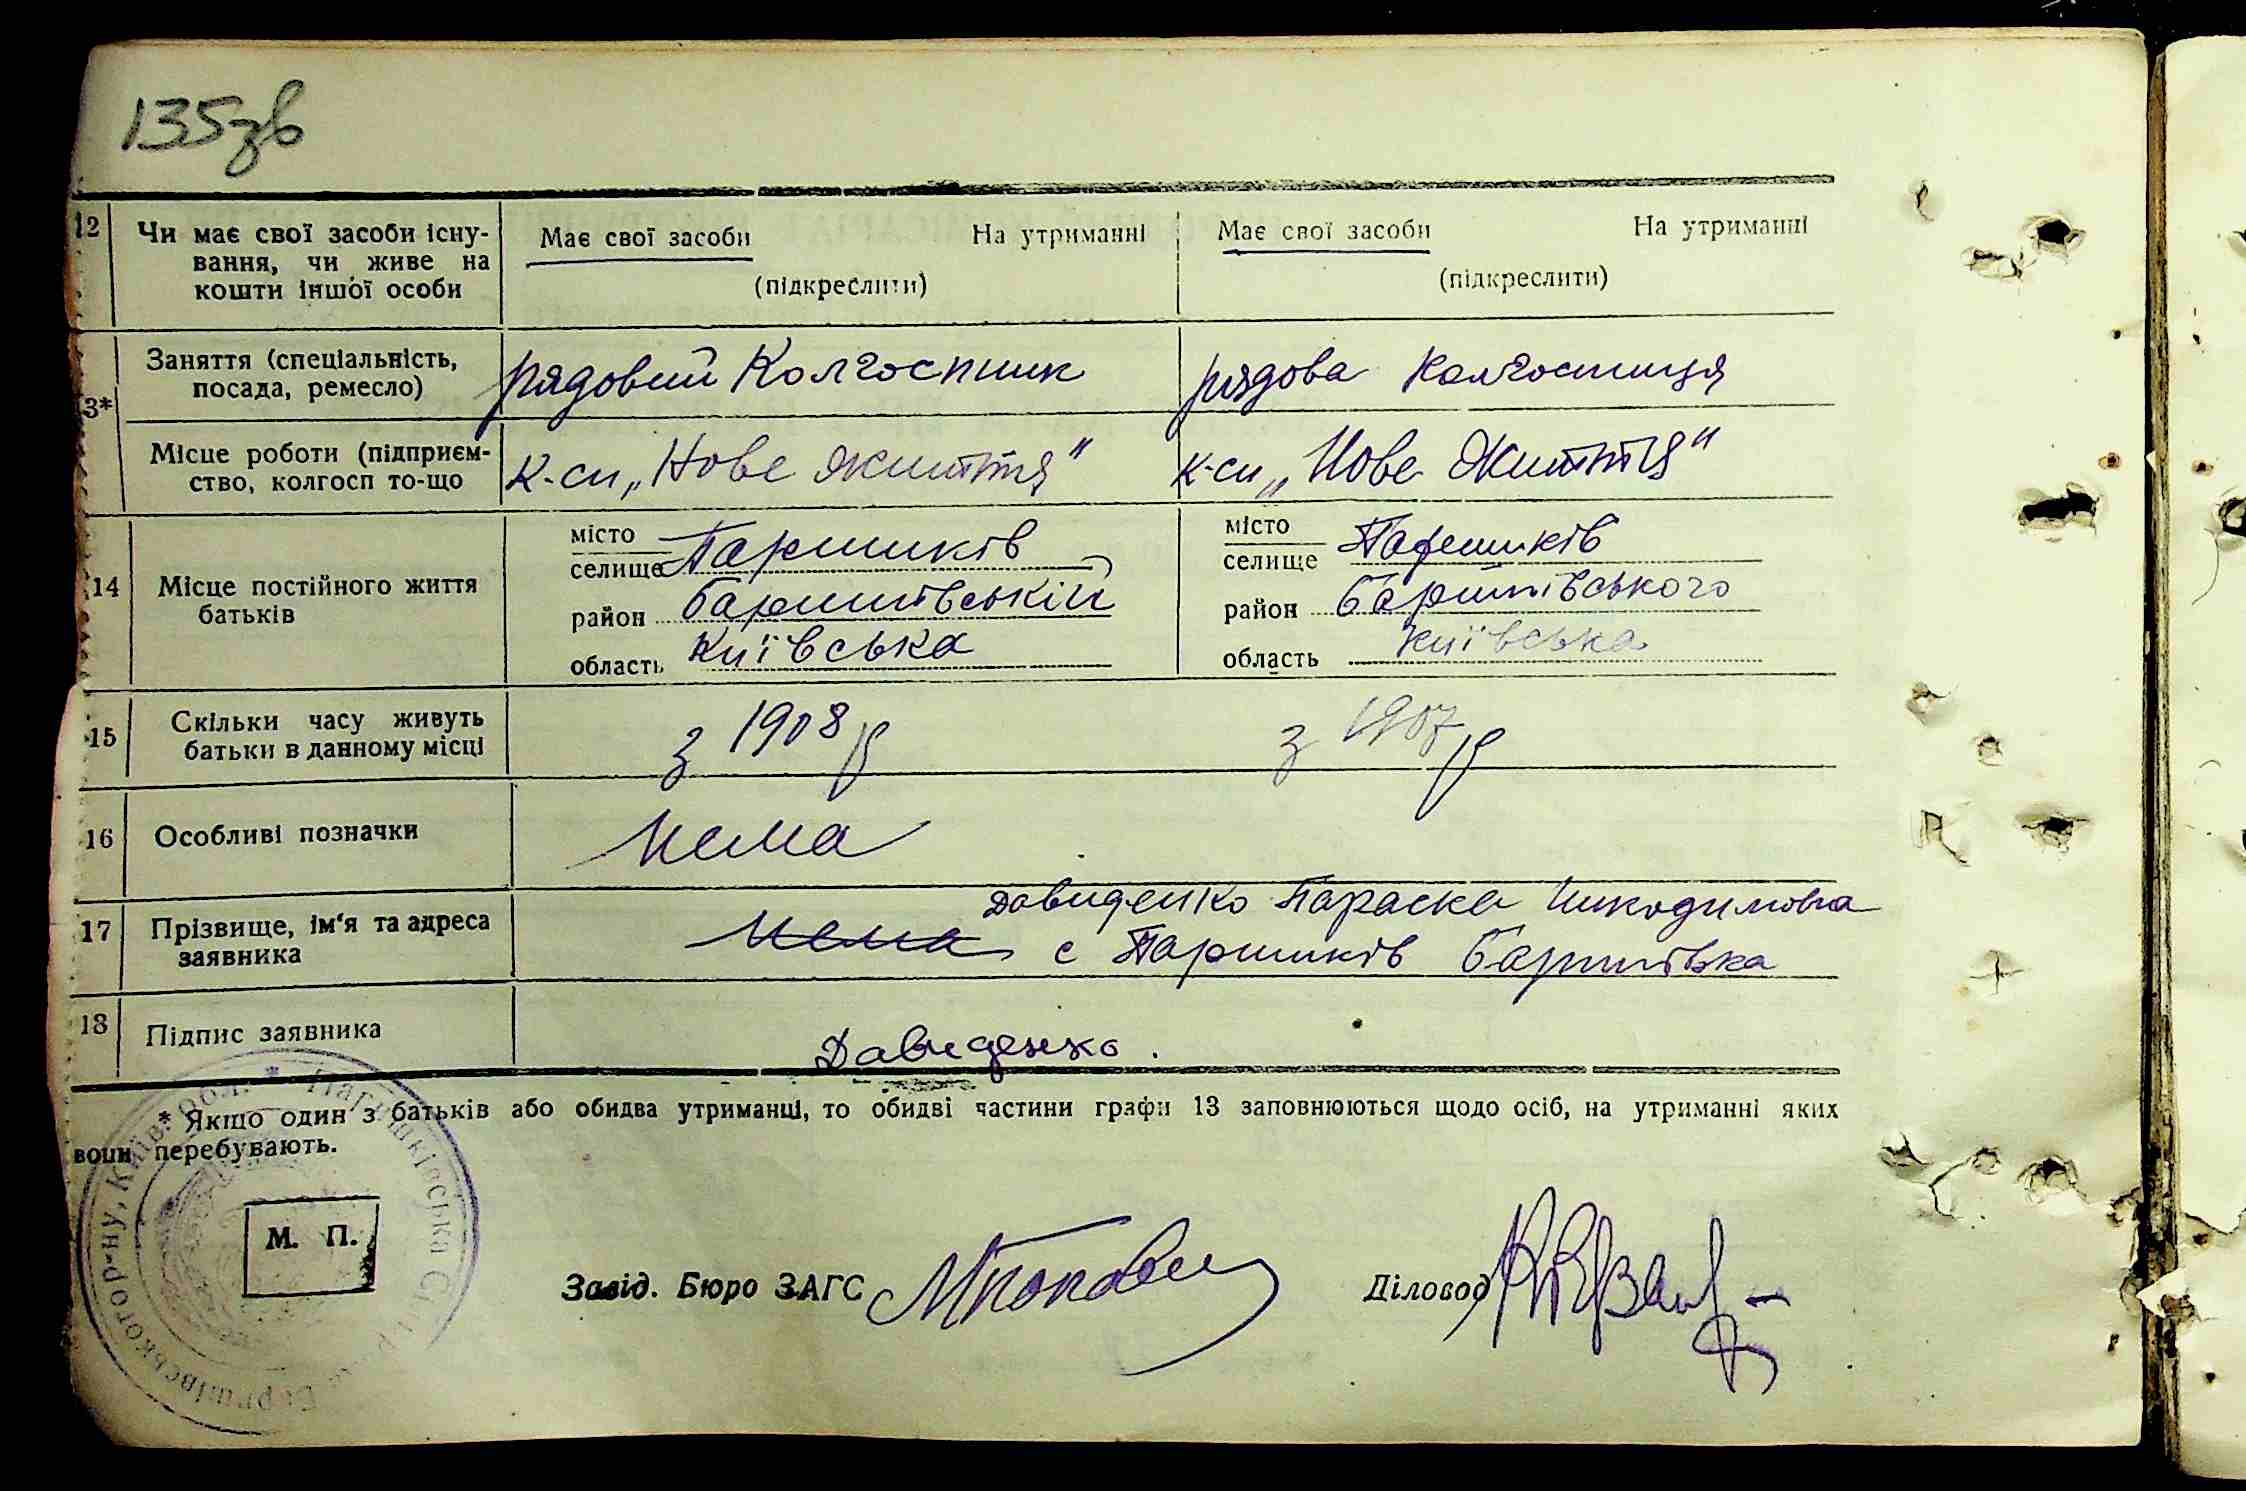 135зв
12 Чи має свої засоби існу- Має свої засоби На утриманні Має свої засоби На утриманні
вання, чи живе на
кошти іншої особи (підкреслити) (підкреслити)
Заняття (спеціальність, рядовий Колгоспник рядова Колгоспниця
посада, ремесло)
3*
Місце роботи (підприєм- к-сп „Нове життя" к-сп „Нове Життя"
ство, колгосп то-що
місто Паришків місто Паришків
селище селище
14 Місце постійного життя
батьків район Баришівський район Баришівського
область Київська область Київська
15 Скільки часу живуть з 1908 р з 1907 р
батьки в данному місці
16 Особливі позначки Нема
17 Прізвище, ім'я та адреса Давиденко Параска Никодимовна
заявника Нема с Паришків Баришівка
18 Підпис заявника Давиденко.
* Якщо один з батьків або обидва утриманці, то обидві частини графи 13 заповнюються щодо осіб, на утриманні яких
вони перебувають.
М. П.
Завід. Бюро ЗАГС Діловод